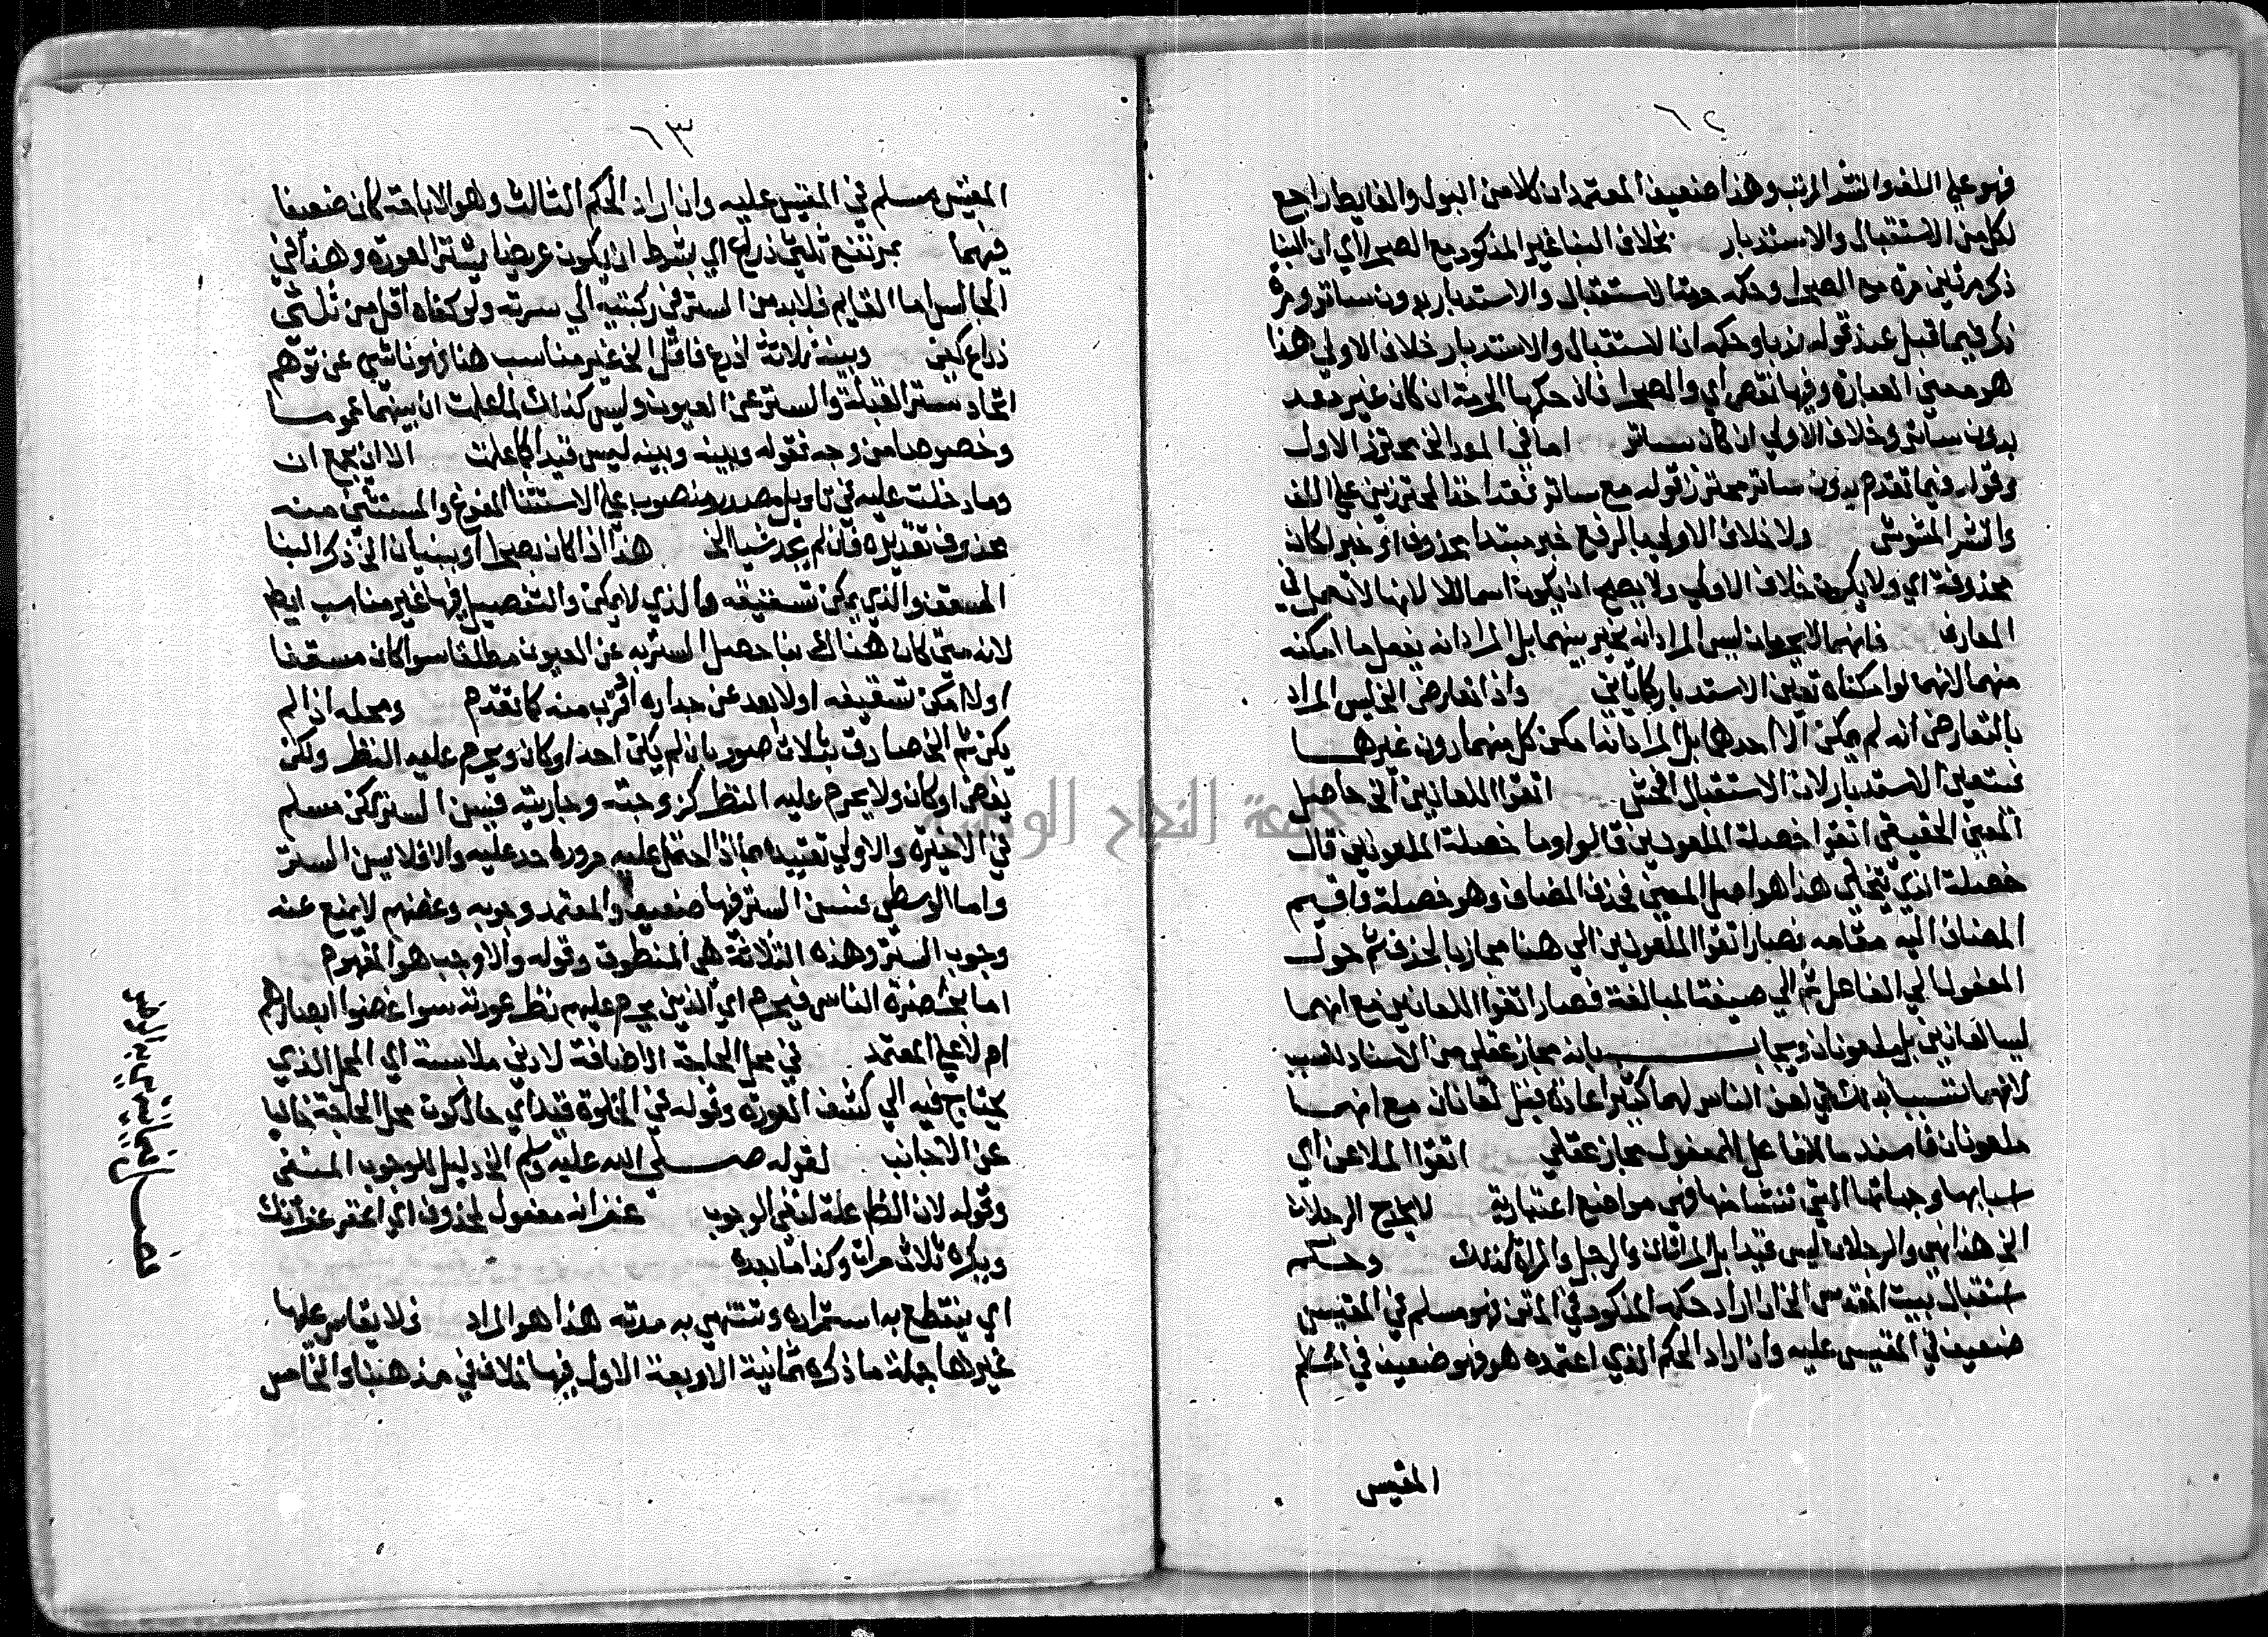 ٦٢
فهو علي اللف والنشر المرتب وهذا ضعيف المعتمد ان كلا من البول والغايط راجع
لكل من الاستقبال والاستدبار بخلاف البنا غير المذكور مع الصحرا اي ان البنا
ذكر مرتين مرة مع الصحرا وحكمه حرمة الاستقبال والاستدبار بدون ساتر ومرة
ذكر فيما قبل عند قوله ندبا وحكمه ان الاستقبال والاستدبار خلاف الاولي هذا
هو معني العبارة وفيها نقص اي والصحرا فان حكمها الحرمة ان كان غير معد
بدون ساتر وخلاف الاولي ان كان بساتر اما في المعد الخ محترز الاول
وقوله فيما تقدم بدون ساتر محترز قوله مع ساتر فقد اخذ المحترزين علي اللف
والنشر المشوش ولا خلاف الاولي بالرفع خبر مبتدا محذوف او خبر لكان
محذوفة اي ولا يكون خلاف الاولي ولا يصح ان يكون اسما للا لانها لا تعمل في
المعارف فانهما لا يحرمان ليس المراد انه يخير بينهما بل المراد انه يفعل ما امكنه
منهما لانهما لو امكناه تعين الاستدبار كما ياتي واذا تعارض الخ ليس المراد
بالتعارض انه لم يمكن الا احدهما بل المراد انه امكن كل منهما دون غيرهما
فيتعين الاستدبار لان الاستقبال افحش اتقوا اللعانين الخ حاصل
المعني الحقيقي اتقوا خصلة الملعونين قالوا وما خصلة الملعونين قال
خصلة الذي يتخلى هذا هو اصل المعني فحذف المضاف وهو خصلة واقيم
المضاف اليه مقامه فصار اتقوا الملعونين الي هنا مجاز بالحذف ثم حول
المفعول الي الفاعل ثم الي صيغة المبالغة فصار اتقوا اللعانين مع انهما
ليسا لعانين بل ملعونان ويجاب بانه مجاز عقلي من الاسناد للسبب
لانهما تسببا بذلك في لعن الناس لهما كثيرا عادة فقيل لعانان مع انهما
ملعونان فاسند ما للفاعل للمفعول مجاز عقلي اتقوا الملاعن اي
اسبابها وجهاتها التي تنشا منها وهي مواضع اعتبارية لا يخرج الرجلان
الخ هذا نهي والرجلان ليس قيدا بل المراتان والرجل والمراة كذلك وحكم
استقبال بيت المقدس الخ ان اراد حكمه المذكور في المتن فهو مسلم في المقيس
ضعيف في المقيس عليه وان اراد الحكم الذي اعتمده هو فهو ضعيف في الحكم
المقيس
٦٣
المقيس مسلم في المقيس عليه وان اراد الحكم الثالث وهو الاباحة كان ضعيفا
فيهما بمرتفع ثلثي ذراع اي بشرط ان يكون عريضا يستر العورة وهذا في
الجالس اما القايم فلابد من الستر في ركبتيه الي سرته ولو كفاه اقل من ثلثي
ذراع كفي وبينه ثلاثة اذرع فاقل الخ غير مناسب هنا فهو ناشي عن توهم
اتحاد ستر القبلة والستر عن العيون وليس كذلك لما علمت ان بينهما عموما
وخصوصا من وجه فقوله وبينه وبينه ليس قيدا كما علمت الا ان يجمع ان
وما دخلت عليه في تاويل مصدر منصوب علي الاستثنا المفرغ والمستثني منه
محذوف تقديره فان لم يجد شيا الخ هذا اذا كان بصحرا او ببنيان الخ ذكر البنا
المسقف والذي يمكن تسقيفه والذي لا يمكن والتفصيل فيها غير مناسب ايضا
لانه متي كان هناك بنا حصل الستر به عن العيون مطلقا سوا كان مسقفا
اولا امكن تسقيفه اولا بعد عن جداره اقرب منه كما تقدم ومحله اذا لم
يكن ثم الخ صادق بثلاث صور بان لم يكن احد او كان ويحرم عليه النظر ولكن
يغض او كان ولا يحرم عليه النظر كزوجته وجاريته فيسن الستر لكن مسلم
في الاخيرة والاولي تقييدها بما اذا احتمل عليه مرور احد عليه والا فلا يسن الستر
واما الوسطي فسن الستر فيها ضعيف والمعتمد وجوبه وغضهم لا يمنع عنه
وجوب الستر وهذه الثلاثة هي المنطوق وقوله والا وجب هو المفهوم
اما بحضرة الناس فيحرم اي الذين يحرم عليهم نظر عورته سوا غضوا ابصارهم
ام لا علي المعتمد في محل الحاجة الاضافة لادني ملابسة اي المحل الذي
يحتاج فيه الي كشف العورة وقوله في الخلوة قيد اي حال كون محل الحاجة خاليا
عن الاجانب لقوله صلي الله عليه وسلم الخ دليل للوجوب المنفي
وقوله لان النظر علة لنفي الوجوب غفرانه مفعول لمحذوف اي اغفر غفرانك
ويكره ثلاث مرات وكذا ما بعده
اي ينقطع به استمراره وتنتهي به مدته هذا هو المراد فلا يقاس عليها
غيرها جملة ما ذكره ثمانية الاربعة الاول فيها خلاف في مذهبنا والخامس
فصل فيما ينتهي به الوضو